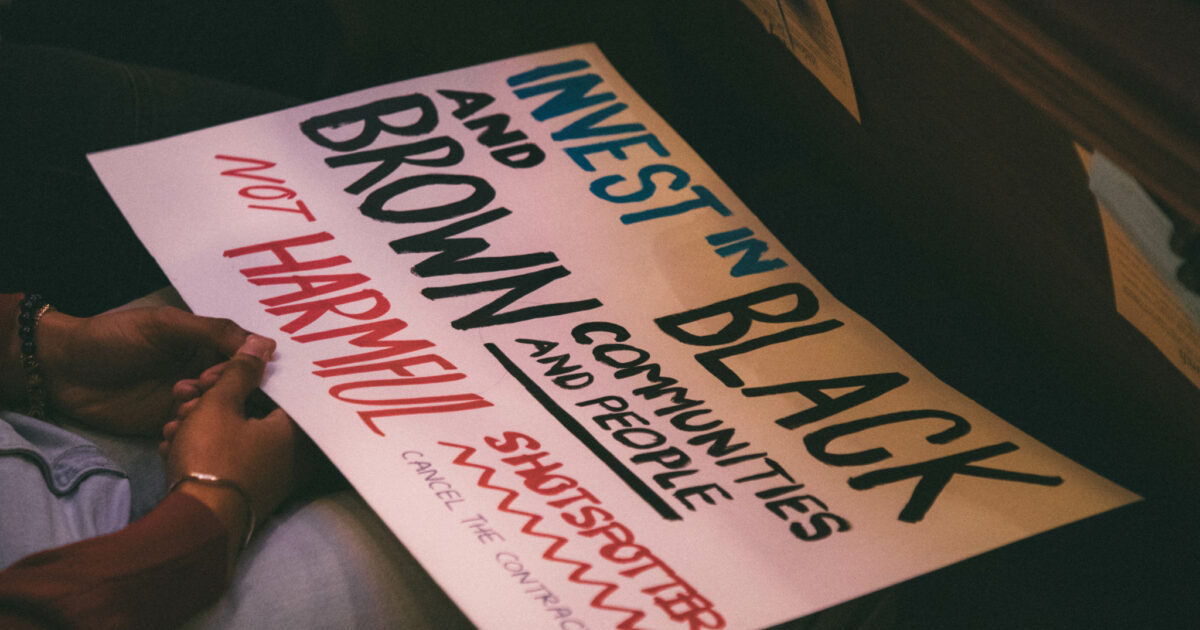 INVEST IN BLACK
AND
BROWN COMMUNITIES
AND PEOPLE
NOT
HARMFUL SHOTSPOTTER
CANCEL THE CONTRAC